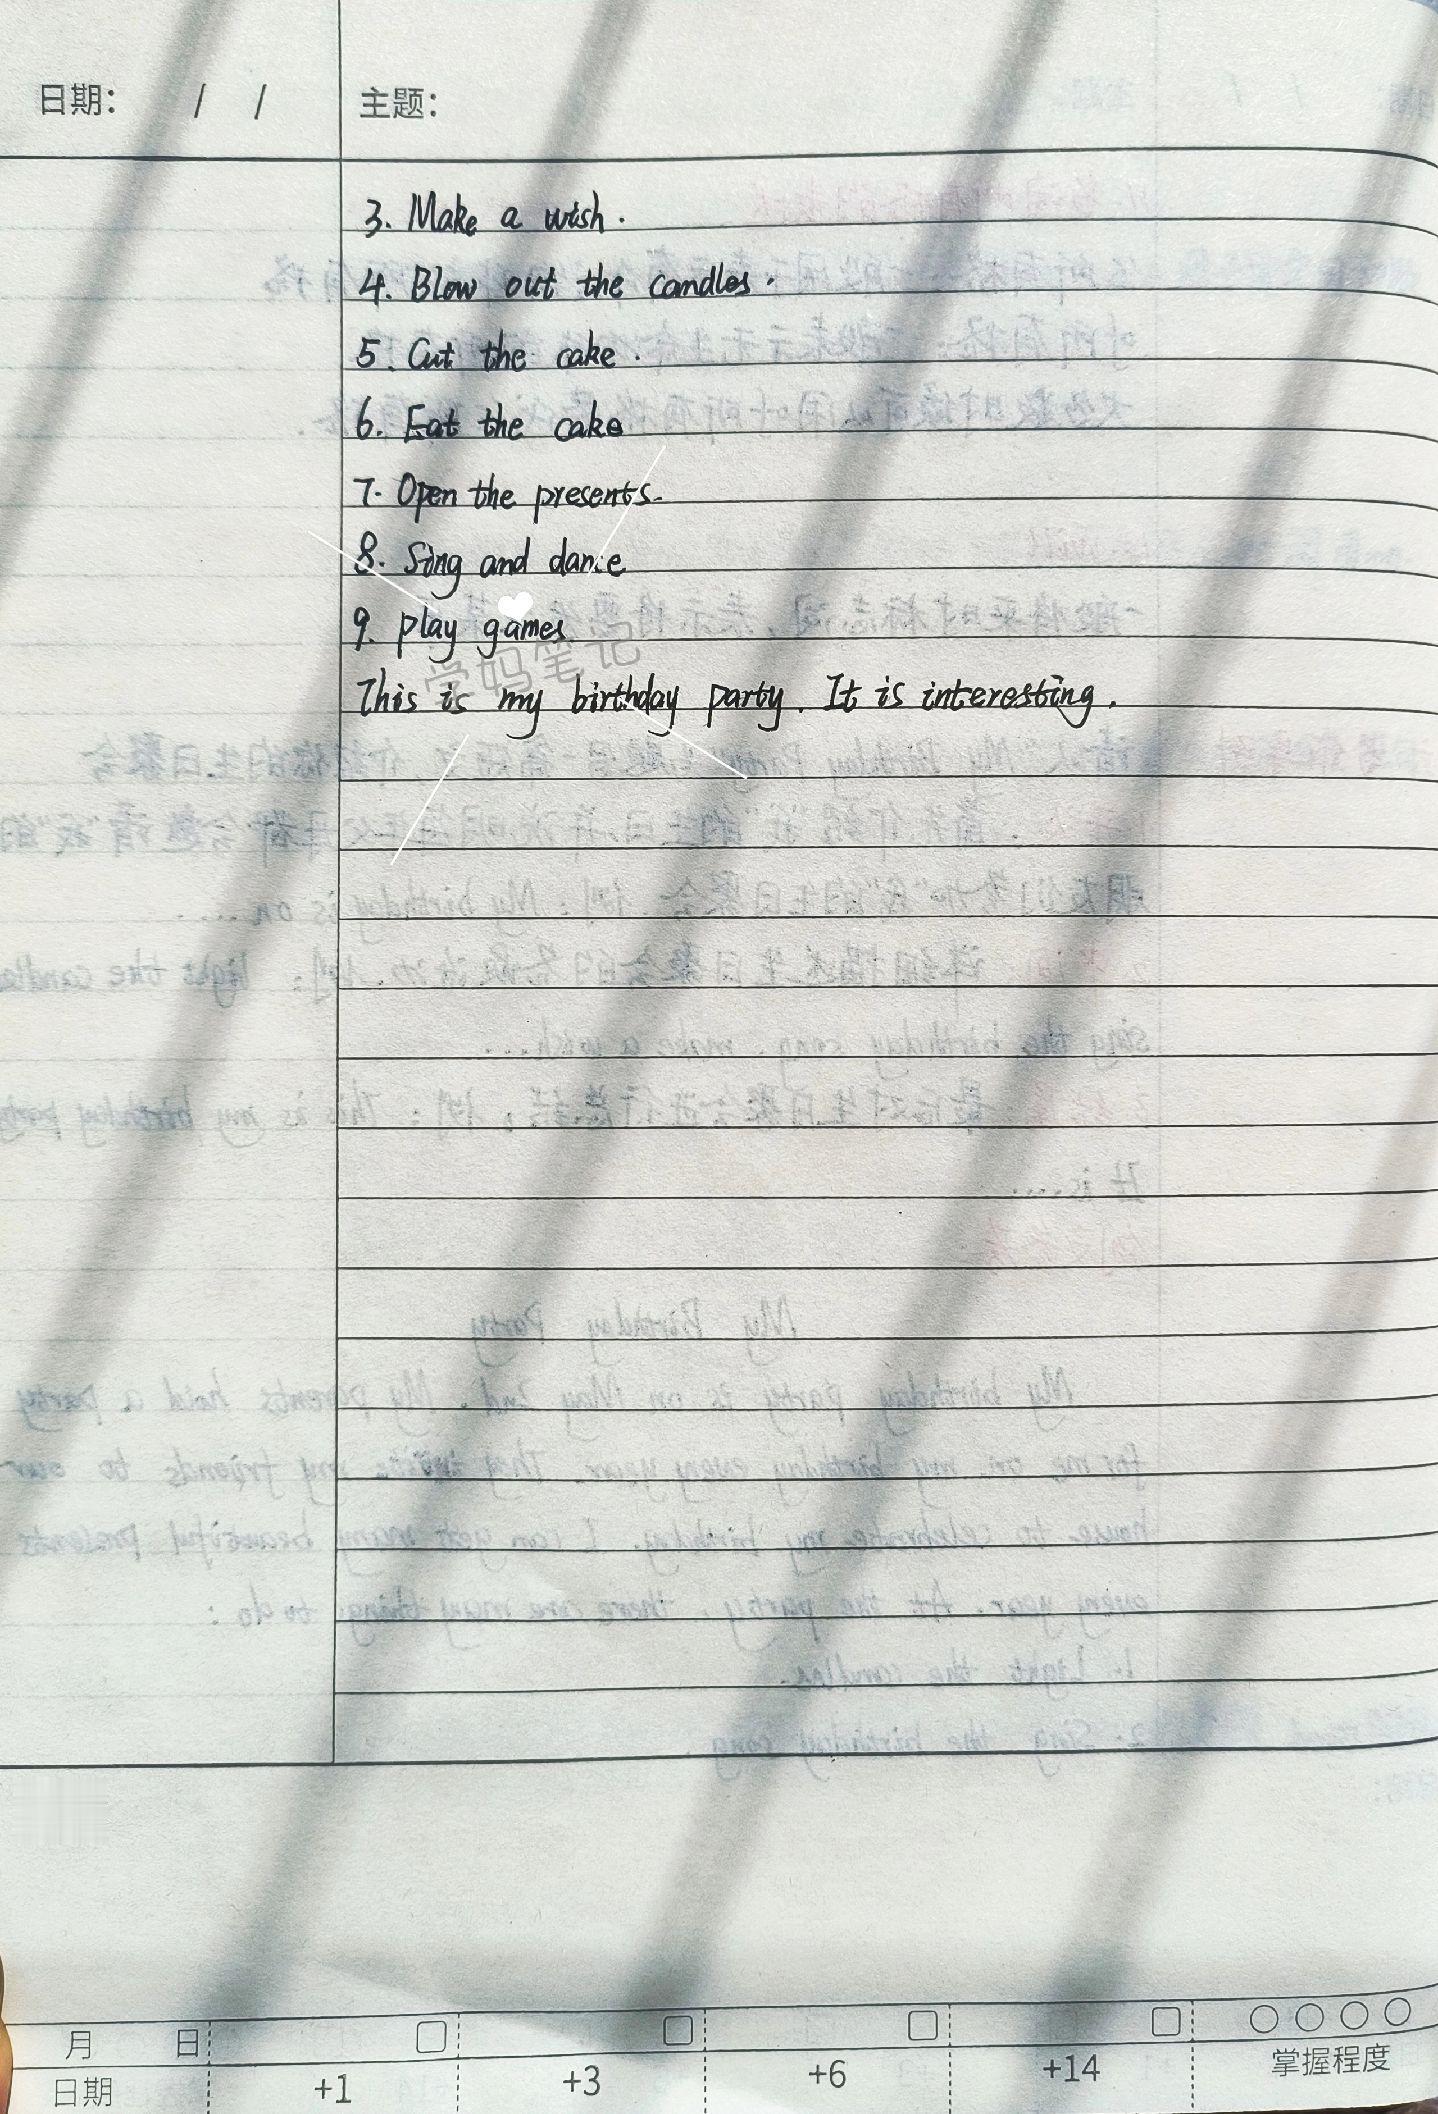 日期: / / 主题:
3. Make a wish.
4. Blow out the candles.
5. Cut the cake.
6. Eat the cake
7. Open the presents.
8. Sing and dance
9. play games
学妈笔记
This is my birthday party. It is interesting.
月 日
日期 +1 +3 +6 +14 掌握程度